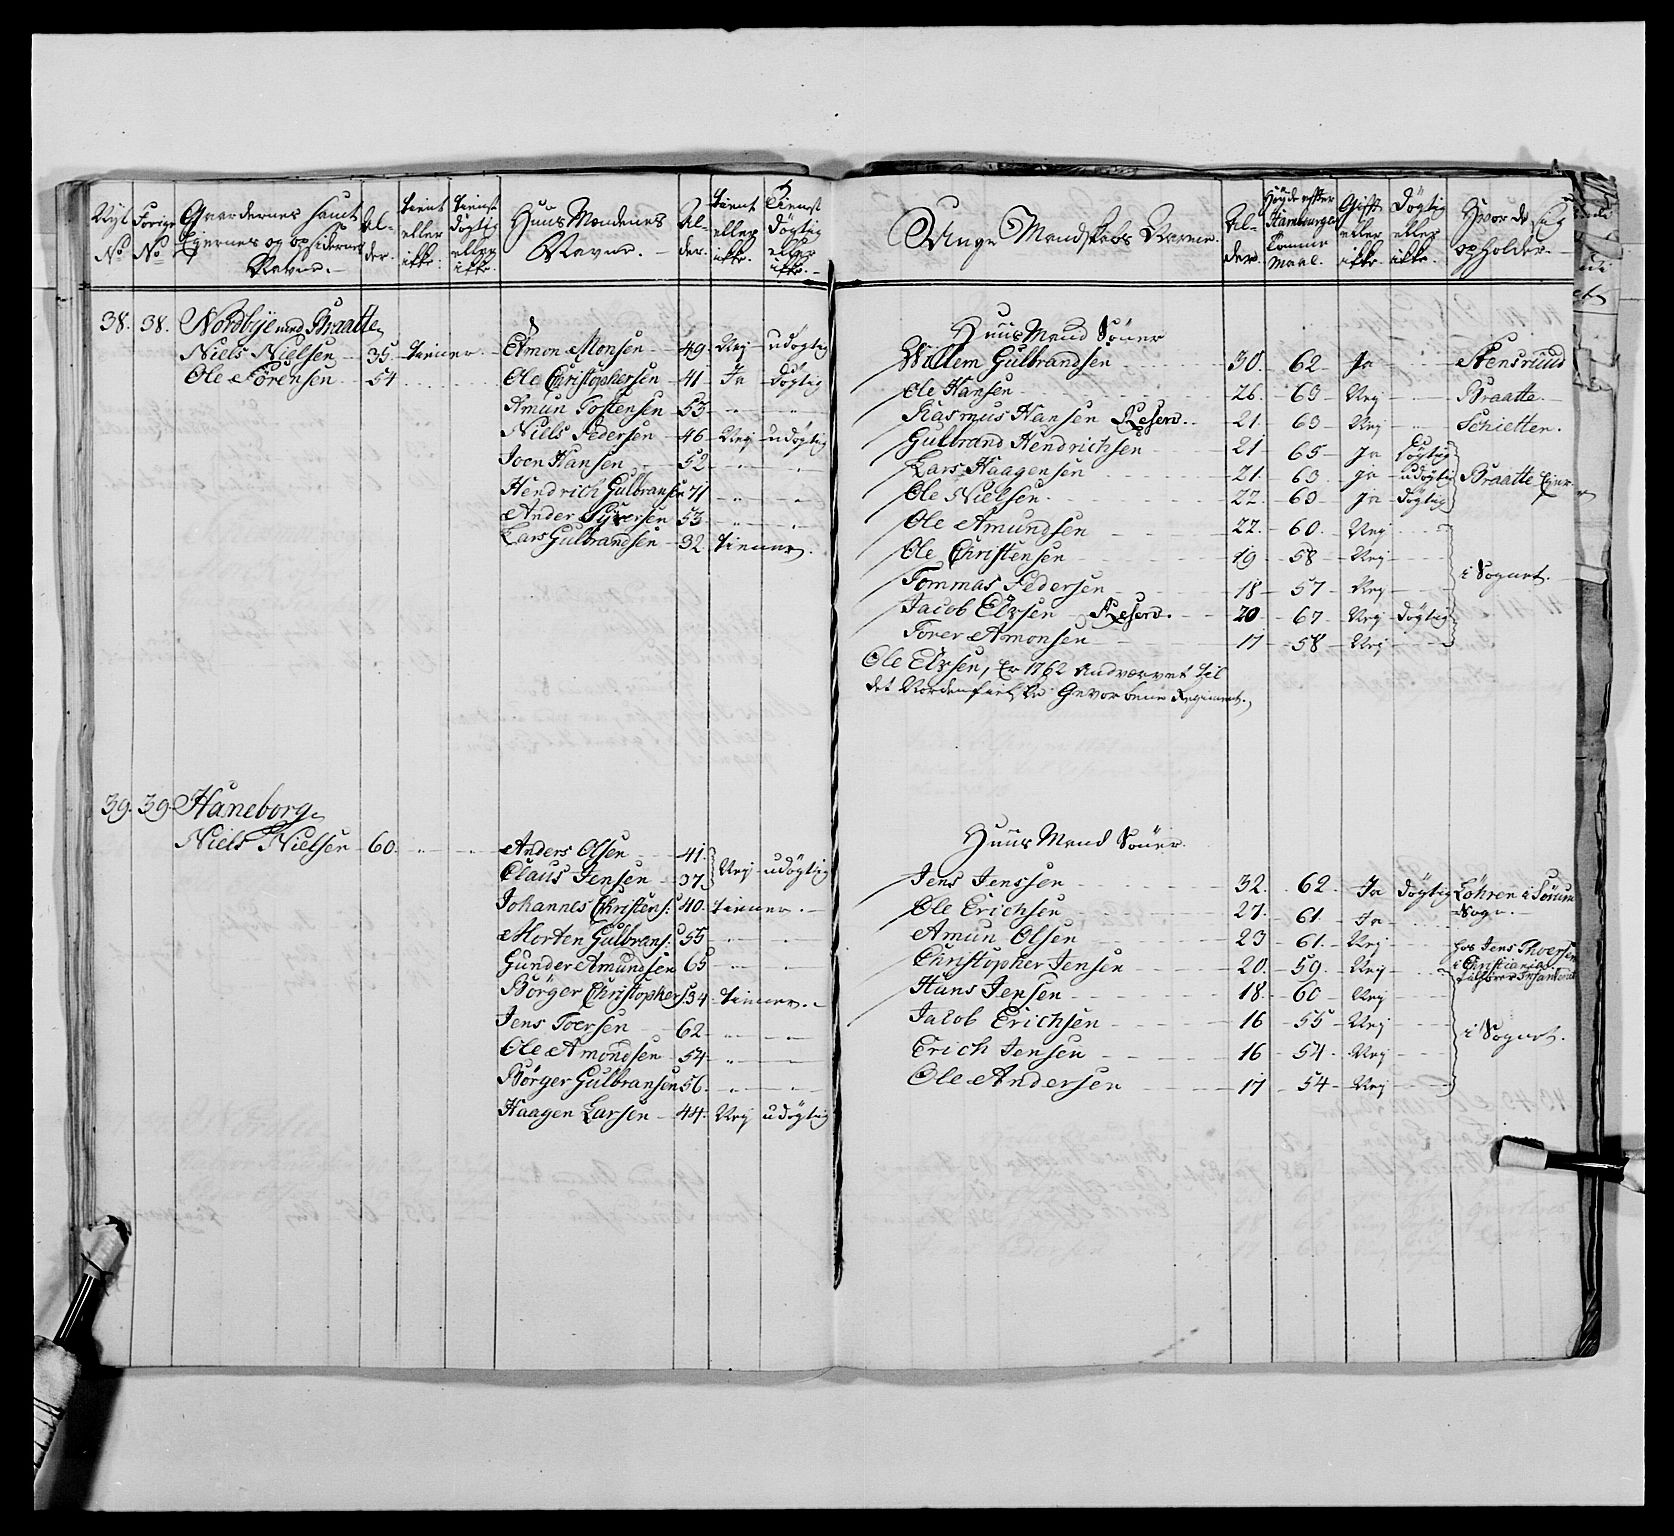 Nye No | Forige No | Gaardernes samt Ejernes og opsiddernes Navne. | Alder. | tient eller ikke. | tienst døgtig eller ikke. | Huus Mændenes Navne. | Alder. | tient eller ikke. | Tienst døgtig eller ikke.
38. 38. Nordbye med Braatte
Niels Nielsen 35. tiener. Amon Monsen 49. Nej udøgtig
Ole Sørensen 54 Ole Christophersen 41 Ja døgtig
Amun Tostensen 53
Niels Pedersen 46 Nej udøgtig
Joen Hansen 52
Hendrich Gulbransen 71
Ander Syversen 53
Lars Gulbrandsen 32 tiener.
39. 39. Haneborg
Niels Nielsen 60. Anders Olsen 41.
Claus Jensen 37 Nej udøgtig
Johannes Christens: 40. tiener.
Morten Gulbrans: 55
Gunder Amundsen 65
Børger Christophers: 34 tiener.
Jens Toersen 62
Ole Amondsen 54
Børger Gulbransen 56.
Haagen Larsen 44. Nej udøgtig
Unge Mandskabs Navne. | Alder. | Høyde efter Hamburger Tomme Maal. | Gift eller ikke. | Døgtig eller ikke. | Hvor de sig opholder.
Huus Mænd Sønner
Willem Gulbrandsen 30. 62 Ja Stensruud
Ole Hansen 26. 63 Nej Braatte
Rasmus Hansen Reserv. 21. 63 Nej Schietten.
Gulbrand Hendrichsen 21 65 Ja Døgtig
Lars Haagensen 21. 63 Ja udøgtig Braatte Ejer
Ole Nielsen 22. 60 Ja døgtig
Ole Amundsen 22. 60. Nej
Ole Christensen 19 58 Nej
Tommas Pedersen 18 57 Nej i Sognet.
Jacob Elzsen Reserv. 20 67 Nej døgtig
Torer Amonsen 17 58 Nej
Ole Elzsen, er 1762 andværvet til
det Nordenfielske Gevorbene Regiment.
Huus Mænd Sønner.
Jens Jenssen 32. 62. Ja døgtig Løhren i Sørum
Ole Erichsen 27. 61. Ja Sogn.
Amun Olsen 23 61. Nej hos Jens Thoersen
Christopher Jensen 20. 59. Nej i Christiania
Hans Jensen 18 60 Nej
Jacob Erichsen 16 55 Nej i Sognet.
Erich Jensen 16 54 Nej
Ole Andersen 17 54 Nej